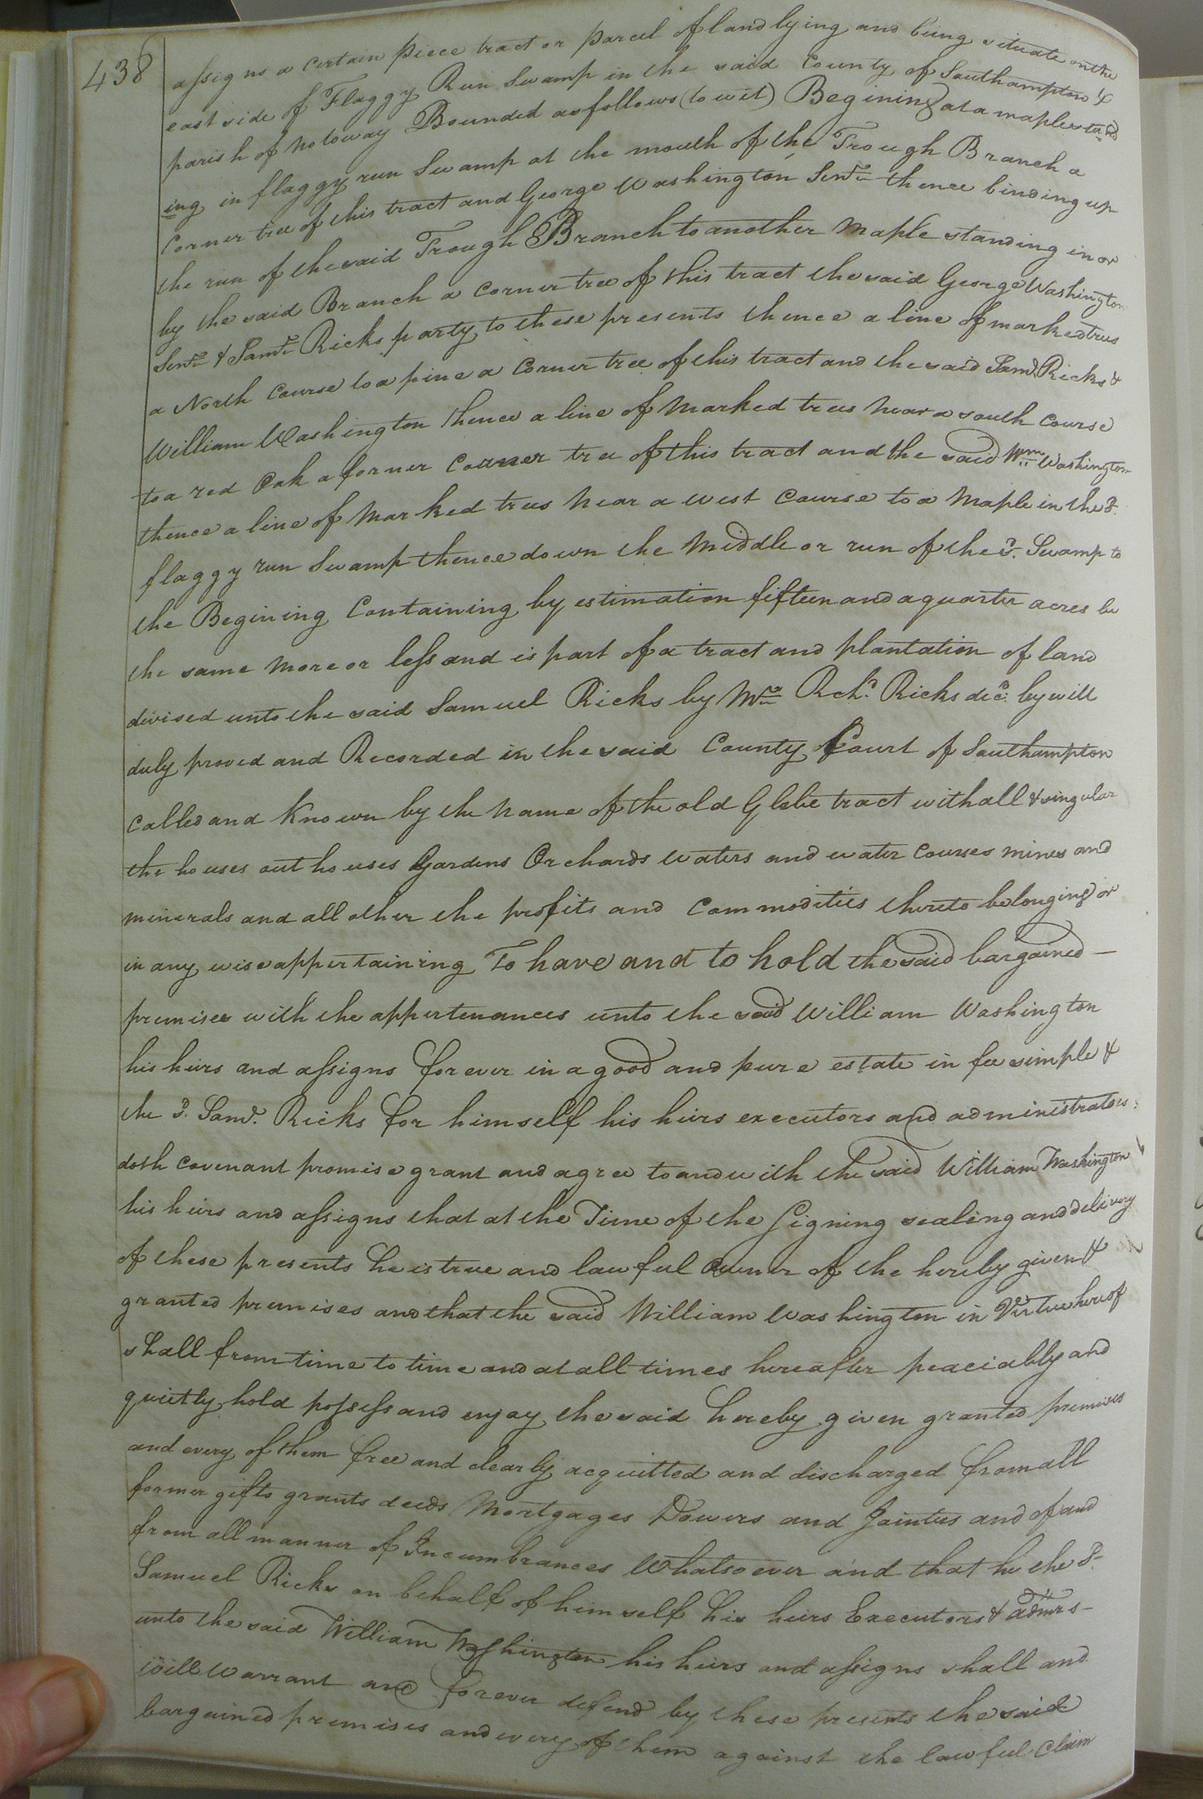 438
assigns a certain piece tract or parcel of land lying and being situate on the
east side of Flaggy Run Swamp in the said County of Southampton &
parish of Notoway Bounded as follows (to wit) Begining at a maple stand
ing in flaggy run Swamp at the mouth of the Trough Branch a
Corner tree of this tract and George Washington Senr. thence binding up
the run of the said Trough Branch to another maple standing in or
by the said Branch a corner tree of this tract the said George Washington
Senr. & Saml. Ricks party to these presents thence a line of marked trees
a North Course to a pine a Corner tree of this tract and the said Saml. Ricks &
William Washington thence a line of marked trees near a south course
to a red Oak a former Corner tree of this tract and the said Wm. Washington
thence a line of Marked trees Near a west Course to a Maple in the sd.
flaggy run Swamp thence down the Middle or run of the sd. Swamp to
the Begining Containing by estimation fifteen and a quarter acres be
the same more or less and is part of a tract and plantation of land
divised unto the said Samuel Ricks by Mrs. Rchl. Ricks decd. by will
duly proved and Recorded in the said County Court of Southampton
Called and Known by the name of the old Glebe tract with all & singular
the houses out houses Gardens Orchards waters and water courses mines and
minerals and all other the profits and Commodities thereto belonging or
in any wise appertaining To have and to hold the said bargained —
premises with the appertenances unto the said William Washington
his heirs and assigns forever in a good and pure estate in fee simple &
the sd. Saml. Ricks for himself his heirs executors and administrators
doth covenant promise grant and agree to and with the said William Washington
his heirs and assigns that at the Time of the Signing sealing and delivery
of these presents he is true and lawful owner of the hereby given &
granted premises and that the said William Washington in Virtue hereof
shall from time to time and at all times hereafter peaciably and
quietly hold possess and enjoy the said hereby given granted premises
and every of them free and clearly acquitted and discharged from all
former gifts grants deeds Mortgages Dowers and Jointus and of and
from all manner of Incumbrances Whatsoever and that he the sd.
Samuel Ricks on behalf of himself his heirs Executors & admrs -
unto the said William Washington his heirs and assigns shall and
will Warrant and forever defend by these presents the said
bargained premises and every of them against the lawful claim